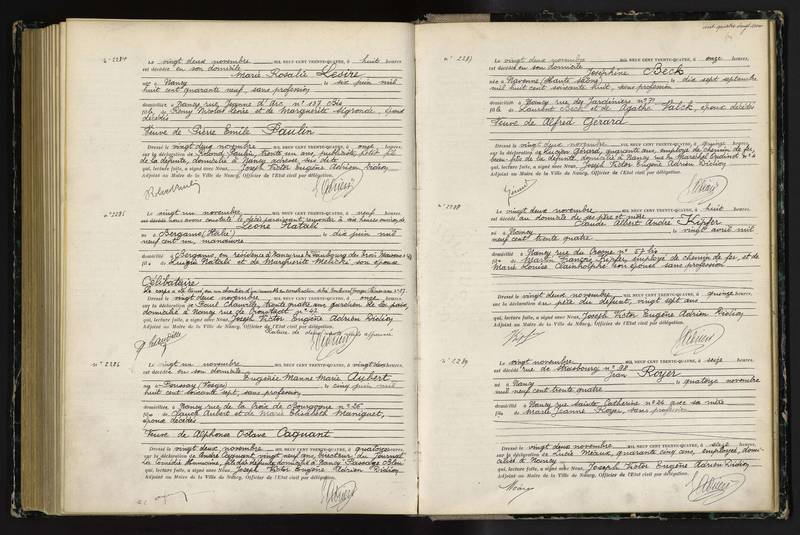 N° 2284
Le vingt deux novembre MIL NEUF CENT TRENTE-QUATRE, à huit heures,
est décédée en son domicile
Marie Rosalie Lesire
née à Nancy le six juin mil
huit cent quarante neuf, sans profession
domiciliée à Nancy rue Jeanne d'Arc, n° 137 Bis
fille de Remy Nicolas Lesire et de Marguerite époux
décédés
Veuve de Pierre Emile Paulin
Dressé le vingt deux novembre MIL NEUF CENT TRENTE-QUATRE, à onze heures,
sur la déclaration de Roland Paulin, trente un ans, publiciste, petit fils
de la défunte, domicilié à Nancy adresse sus dite
qui, lecture faite, a signé avec Nous, Joseph Victor Eugène Adrien
Adjoint au Maire de la Ville de Nancy, Officier de l'Etat civil par délégation.
N° 2285
Le vingt un novembre MIL NEUF CENT TRENTE-QUATRE, à neuf heures,
est décédé nous avons constaté le décès paraissant remonter à
Leone Natali
né à Bergamo (Italie) le dix juin mil
neuf cent un, manœuvre
domicilié à Bergamo, en résidence à Nancy rue du Faubourg des Trois Maisons n°
fils de Luigia Natali et de Marguerite son épouse
Célibataire
Le corps a été trouvé en un chantier
Dressé le vingt deux novembre MIL NEUF CENT TRENTE-QUATRE, à onze heures,
sur la déclaration de Paul trente quatre ans, gardien de la paix,
domicilié à Nancy rue de Cronstadt n° 42
qui, lecture faite, a signé avec Nous, Joseph Victor Eugène Adrien
Adjoint au Maire de la Ville de Nancy, Officier de l'Etat civil par délégation.
N° 2286
Le vingt un novembre MIL NEUF CENT TRENTE-QUATRE, à vingt deux heures,
est décédée en son domicile
Eugénie Marie Aubert
née à Poussay (Vosges) le cinq juin mil
huit cent soixante sept, sans profession
domiciliée à Nancy rue de la Croix de Bourgogne n° 26
fille de Aubert et de Marie Elisabeth
époux décédés
Veuve de Alphonse Octave Cagnant
Dressé le vingt deux novembre MIL NEUF CENT TRENTE-QUATRE, à quatorze heures,
sur la déclaration de André Cagnant, vingt neuf ans, directeur du Journal
domicilié à Nancy Passage Bleu
qui, lecture faite, a signé avec Nous, Joseph Victor Eugène Adrien
Adjoint au Maire de la Ville de Nancy, Officier de l'Etat civil par délégation.
N° 2287
Le vingt deux novembre MIL NEUF CENT TRENTE-QUATRE, à onze heures,
est décédée en son domicile
Joséphine Beck
née à (Haute Saône) le dix sept septembre
mil huit cent soixante huit, sans profession
domiciliée à Nancy rue des Jardiniers n° 71
fille de Laurent Beck et de Agathe Falck, époux décédés
Veuve de Alfred Gérard
Dressé le vingt deux novembre MIL NEUF CENT TRENTE-QUATRE, à quinze heures,
sur la déclaration de Lucien Gérard, quarante ans, employé de chemin de fer,
beau-fils de la défunte, domicilié à Nancy rue du Maréchal Oudinot n°
qui, lecture faite, a signé avec Nous, Joseph Victor Eugène Adrien
Adjoint au Maire de la Ville de Nancy, Officier de l'Etat civil par délégation.
N° 2288
Le vingt deux novembre MIL NEUF CENT TRENTE-QUATRE, à huit heures,
est décédé au domicile de ses père et mère
Claude Albert André Kipfer
né à Nancy le vingt avril mil
neuf cent trente quatre
domicilié à Nancy rue du Crosne n° 57 bis
fils de Martin François Kipfer, employé de chemin de fer, et de
Marie Louise son épouse sans profession
Dressé le vingt deux novembre MIL NEUF CENT TRENTE-QUATRE, à quinze heures,
sur la déclaration du père du défunt, vingt sept ans
qui, lecture faite, a signé avec Nous, Joseph Victor Eugène Adrien
Adjoint au Maire de la Ville de Nancy, Officier de l'Etat civil par délégation.
Kipfer
N° 2289
Le vingt novembre MIL NEUF CENT TRENTE-QUATRE, à seize heures,
est décédé rue de Strasbourg n° 98
Jean Royer
né à Nancy le quatorze novembre
mil neuf cent trente quatre
domicilié à Nancy rue Sainte Catherine n° 26 avec sa mère
fils de Marie Jeanne Royer, sans profession
Dressé le vingt deux novembre MIL NEUF CENT TRENTE-QUATRE, à seize heures,
sur la déclaration de Lucie quarante cinq ans, employée, domi-
ciliée à Nancy
qui, lecture faite, a signé avec Nous, Joseph Victor Eugène Adrien
Adjoint au Maire de la Ville de Nancy, Officier de l'Etat civil par délégation.